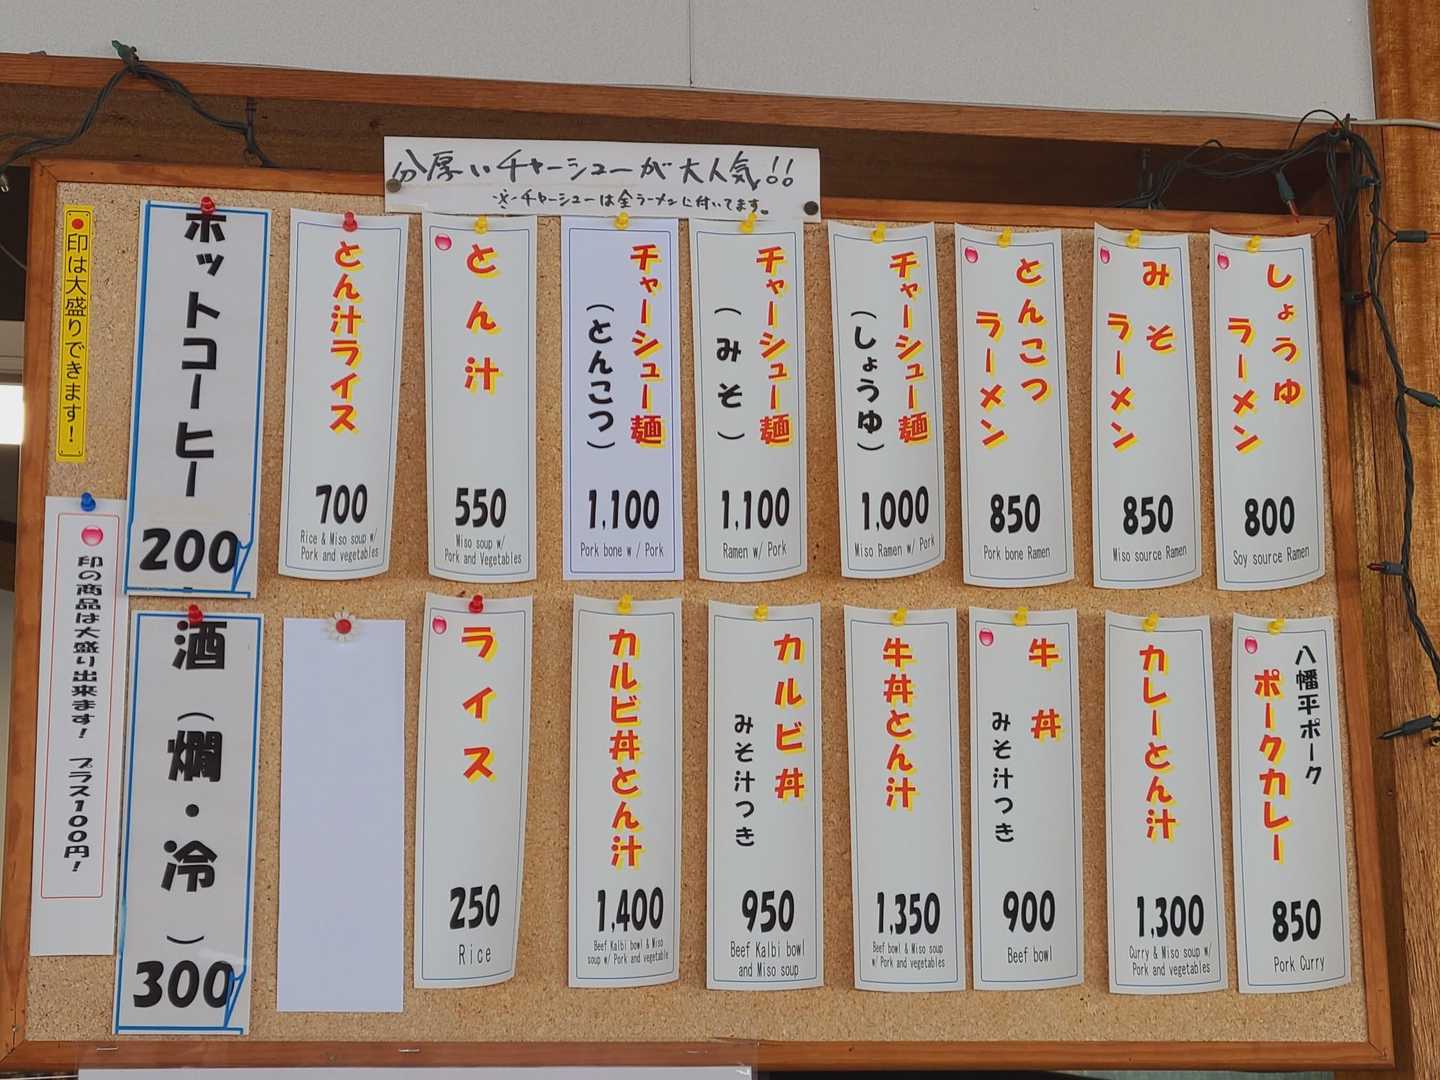 分厚いチャーシューが大人気!!
※チャーシューは全ラーメンに付いてます。
しょうゆ
ラーメン
800
Soy source Ramen
みそ
ラーメン
850
Miso source Ramen
とんこつ
ラーメン
850
Pork bone Ramen
チャーシュー麺
(しょうゆ)
1,000
Miso Ramen w/ Pork
チャーシュー麺
(みそ)
1,100
Ramen w/ Pork
チャーシュー麺
(とんこつ)
1,100
Pork bone w / Pork
とん汁
550
Miso soup w/
Pork and Vegetables
とん汁ライス
700
Rice & Miso soup w/
Pork and vegetables
ホットコーヒー
200
印は大盛りできます!
八幡平ポーク
ポークカレー
850
Pork Curry
カレーとん汁
1,300
Curry & Miso soup w/
Pork and vegetables
牛丼
みそ汁つき
900
Beef bowl
牛丼とん汁
1,350
Beef bowl & Miso soup
w/ Pork and vegetables
カルビ丼
みそ汁つき
950
Beef Kalbi bowl
and Miso soup
カルビ丼とん汁
1,400
Beef Kalbi bowl & Miso
soup w/ Pork and vegetable
ライス
250
Rice
酒(燗・冷)
300
印の商品は大盛り出来ます! プラス100円!